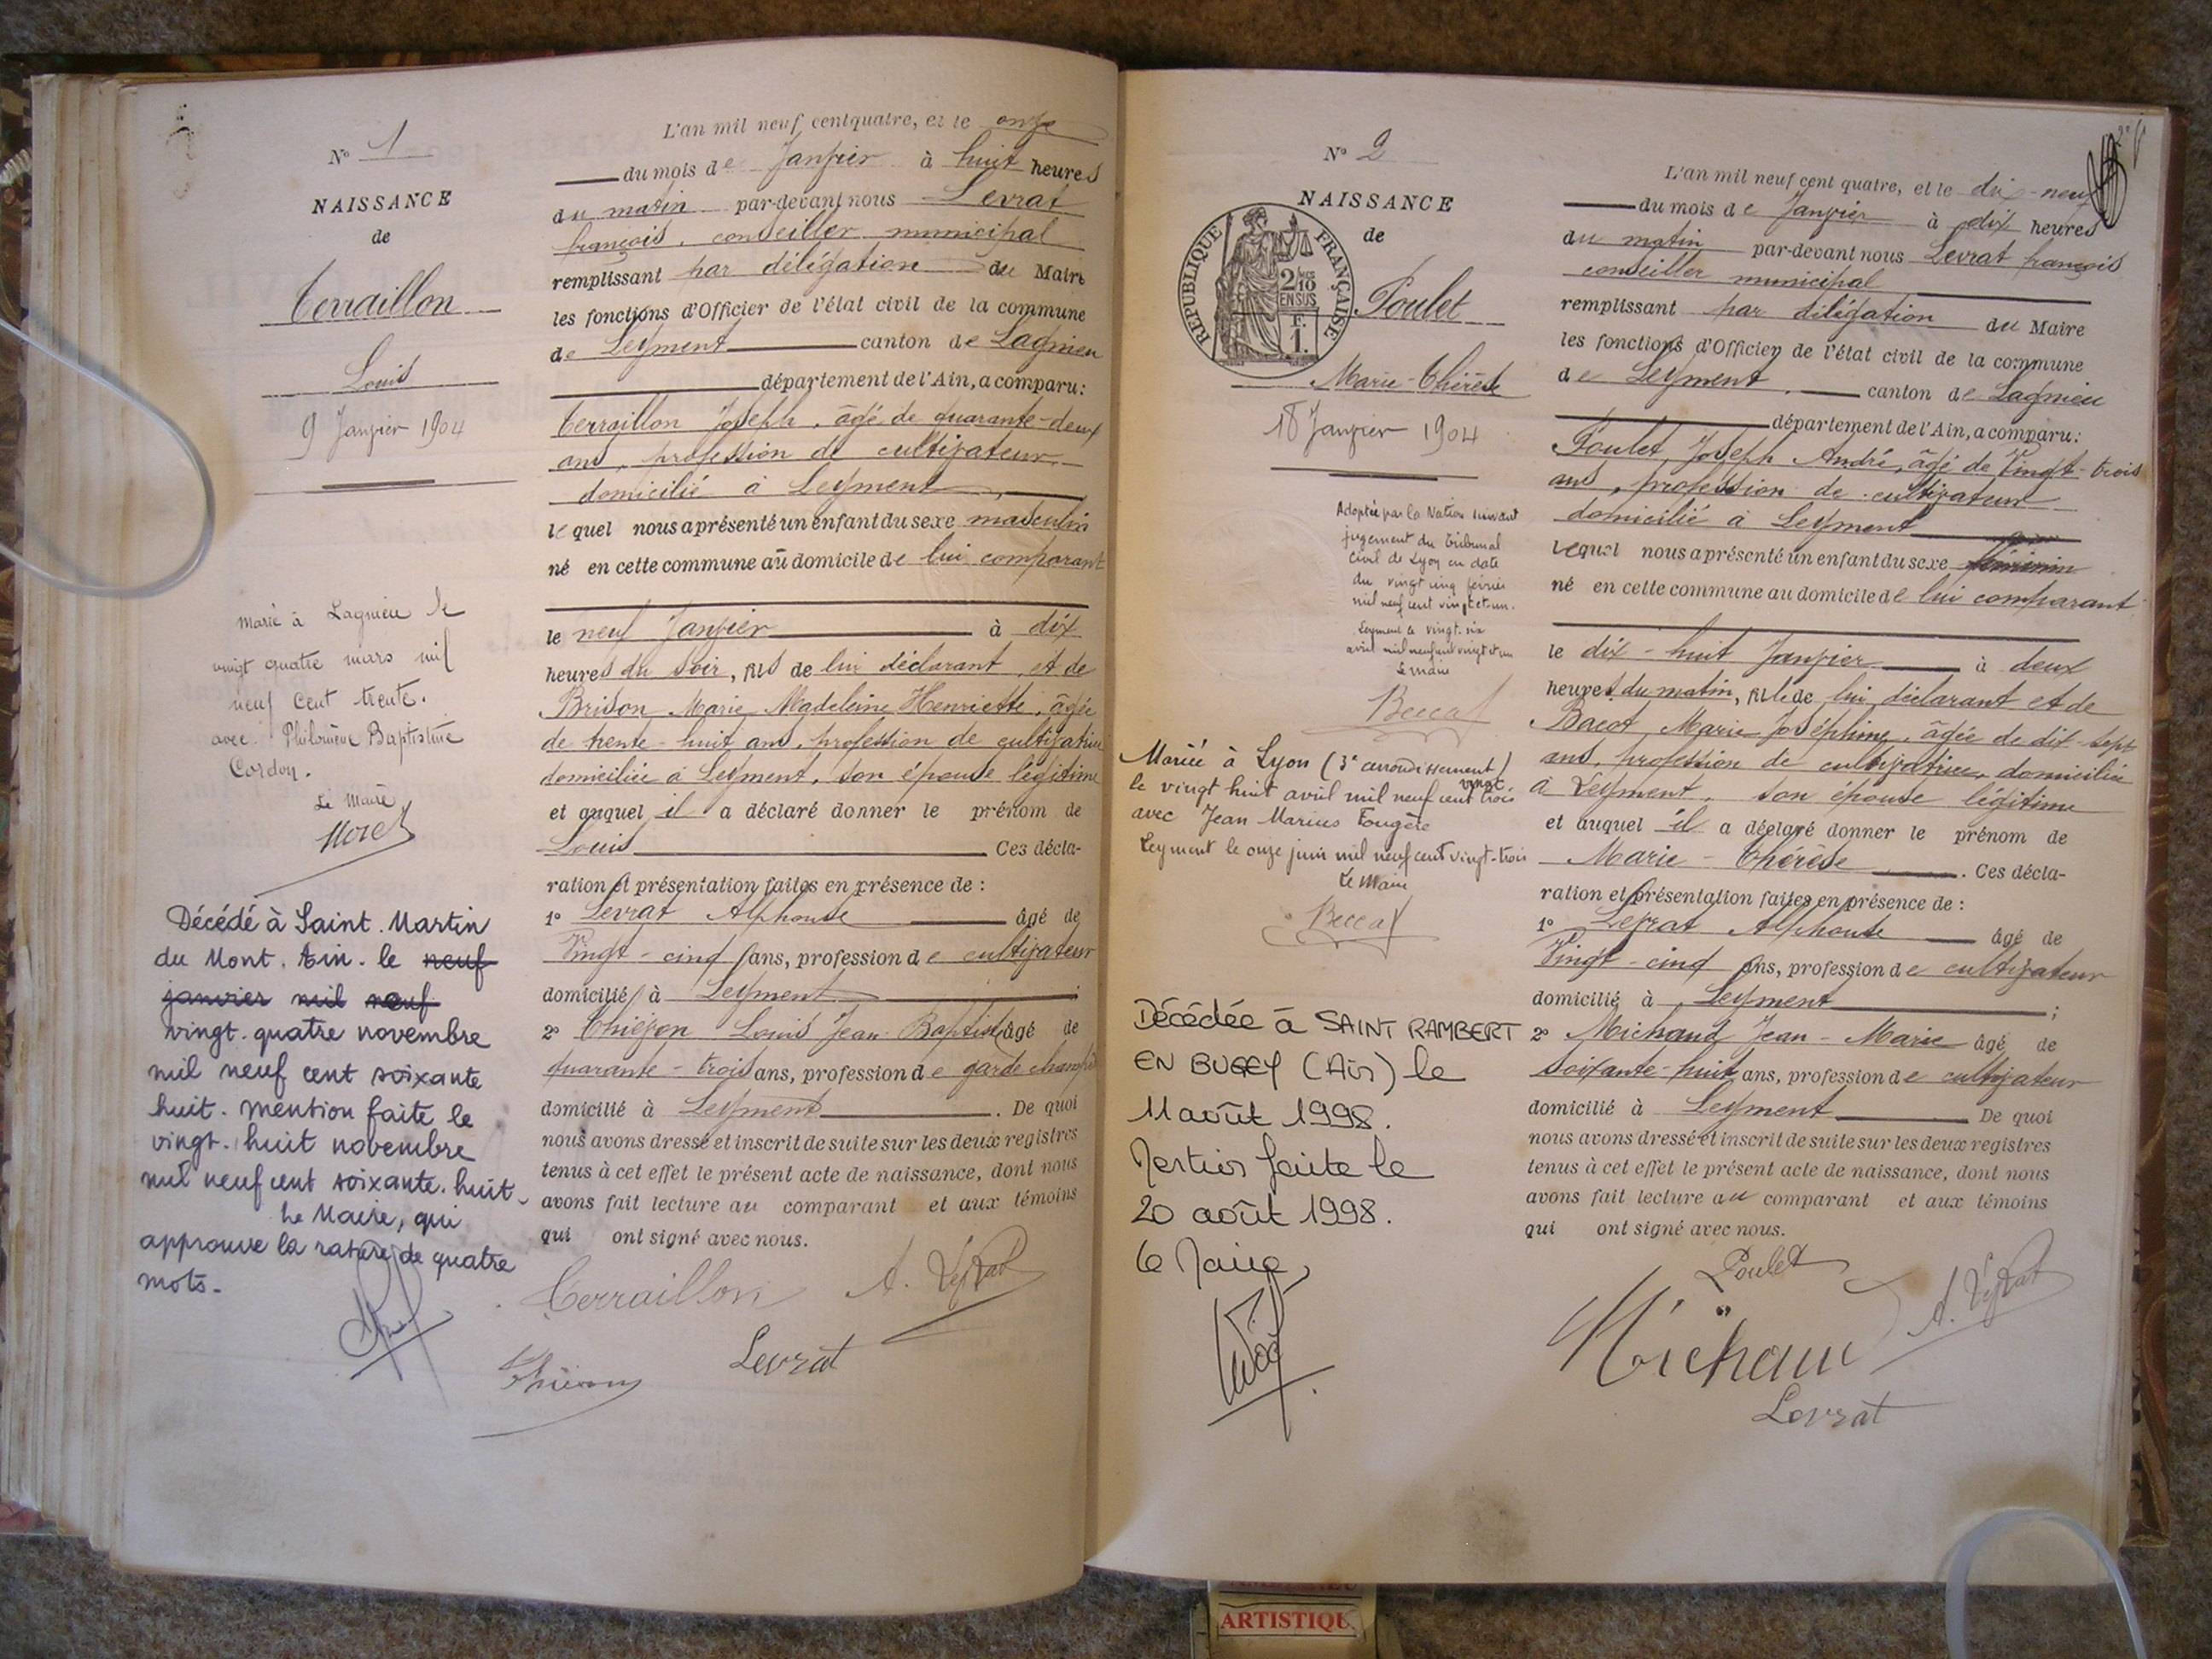 N° 1
NAISSANCE
de
Terraillon
Louis
9 Janvier 1904
Marié à Lagnieu le
vingt quatre mars mil
neuf cent trente.
avec Philomène Baptistine
Cordon.
Le Maire
Morel
Décédé à Saint. Martin
du Mont. Ain. le neuf
janvier mil neuf
vingt. quatre novembre
mil neuf cent soixante
huit. mention faite le
vingt. huit novembre
mil neuf cent soixante. huit.
Le Maire, qui
approuve la rature de quatre
mots.
L'an mil neuf cent quatre, et le onze
du mois de Janvier à huit heures
du matin par-devant nous Levrat
françois, conseiller municipal
remplissant par délégation du Maire
les fonctions d'Officier de l'état civil de la commune
de Leyment canton de Lagnieu
département de l'Ain, a comparu:
Terraillon Joseph, âgé de quarante-deux
ans, profession de cultivateur
domicilié à Leyment
lequel nous a présenté un enfant du sexe masculin
né en cette commune au domicile de lui comparant
le neuf Janvier à dix
heures du soir, fils de lui déclarant et de
Brison Marie Magdeleine Henriette, âgée
de trente-huit ans, profession de cultivatrice
domiciliée à Leyment, son épouse légitime
et auquel il a déclaré donner le prénom de
Louis Ces décla-
ration et présentation faites en présence de :
1° Levrat Alphonse âgé de
Vingt-cinq ans, profession de cultivateur
domicilié à Leyment ;
2° Thiézon Louis Jean Baptiste âgé de
quarante-trois ans, profession de garde champ
domicilié à Leyment. De quoi
nous avons dressé et inscrit de suite sur les deux registres
tenus à cet effet le présent acte de naissance, dont nous
avons fait lecture au comparant et aux témoins
qui ont signé avec nous.
Terraillon A. Levrat
Levrat
N° 2
NAISSANCE
de
REPUBLIQUE FRANÇAISE
2/10
EN SUS
F.
1.
Poulet
Marie-Thérèse
18 Janvier 1904
Adoptée par la Nation suivant
jugement du Tribunal
Civil de Lyon en date
du vingt cinq février
mil neuf cent vingt et un.
Leyment le vingt. six
avril mil neuf cent vingt et un
Le Maire
Beccat
Mariée à Lyon (3e arrondissement)
le vingt huit avril mil neuf cent vingt trois
avec Jean Marius Fougère
Leyment le onze juin mil neuf cent vingt-trois
Le Maire
Beccat
Décédée à SAINT RAMBERT
EN BUGEY (Ain) le
11 août 1998.
Mention faite le
20 août 1998.
Le Maire,
L'an mil neuf cent quatre, et le dix-neuf
du mois de Janvier à dix heures
du matin par-devant nous Levrat françois
conseiller municipal
remplissant par délégation du Maire
les fonctions d'Officier de l'état civil de la commune
de Leyment. canton de Lagnieu
département de l'Ain, a comparu:
Poulet Joseph André, âgé de Vingt-trois
ans, profession de cultivateur
domicilié à Leyment
lequel nous a présenté un enfant du sexe féminin
né en cette commune au domicile de lui comparant
le dix-huit Janvier à deux
heures du matin, fille de lui déclarant et de
Bacot Marie Joséphine, âgée de dix-sept
ans, profession de cultivatrice, domiciliée
à Leyment, son épouse légitime
et auquel il a déclaré donner le prénom de
Marie-Thérèse. Ces décla-
ration et présentation faites en présence de :
1° Levrat Alphonse âgé de
Vingt-cinq ans, profession de cultivateur
domicilié à Leyment ;
2° Michaud Jean-Marie âgé de
soixante-huit ans, profession de cultivateur
domicilié à Leyment De quoi
nous avons dressé et inscrit de suite sur les deux registres
tenus à cet effet le présent acte de naissance, dont nous
avons fait lecture au comparant et aux témoins
qui ont signé avec nous.
Poulet
Michaud A. Levrat
Levrat
ARTISTIQU